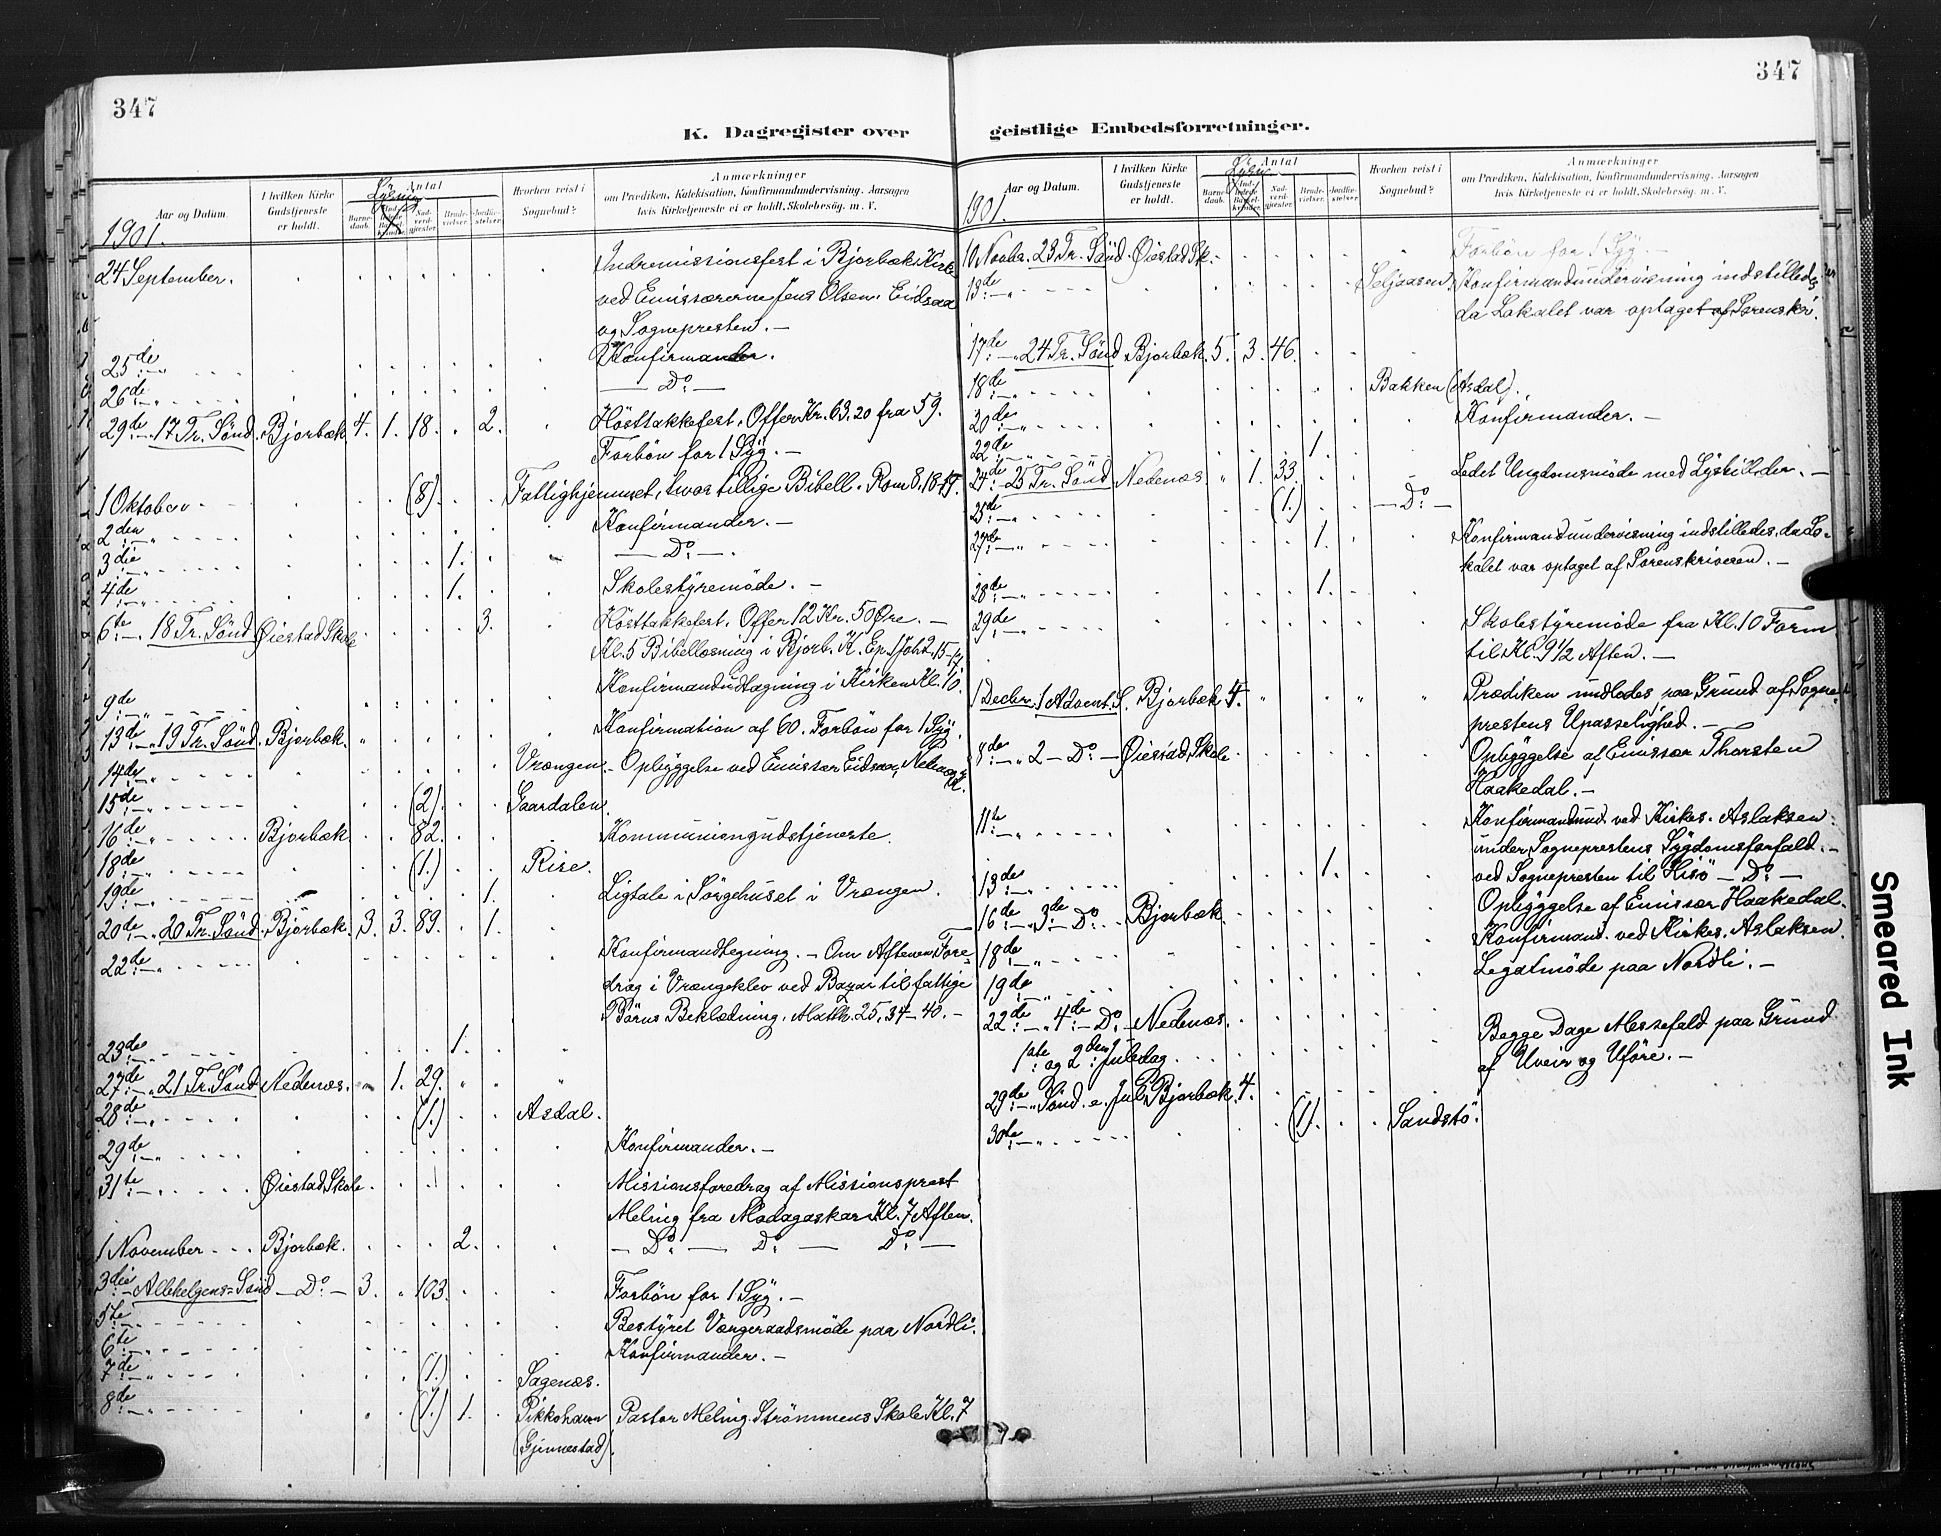 347
K. Dagregister over
Aar og Datum.
I hvilken Kirke Gudstjeneste er holdt.
Antal
Barnedaab.
Nadverdgjæster.
Brudevielser.
Jordfæstelser.
Hvorhen reist i Sognebud?
Anmærkninger
om Prædiken, Katekisation, Konfirmandundervisning, Aarsagen
hvis Kirketjeneste ei er holdt, Skolebesøg. m. V.
1901.
24 September. Indremissionsfest i Bjorbæk Kirke
ved Emissærerne Jens Olsen, Eidsaa
og Sognepresten. —
25de Konfirmander.
26de — Do. —
29de 17 Tr. Sönd. Bjorbæk 4. 1. 18. 2. Hösttakkefest. Offer Kr. 63.20 fra 59.
Forbön for 1 Syg. —
1 Oktober (8). Fattighjemmet, hvor tillige Bibell. Rom 8.
2den Konfirmander. —
3die 1. — Do. —
4de 1. Skolestyremöde. —
6te 18 Tr. Sönd. Øiestad Skole 3. Hösttakkefest. Offer 12 Kr. 50 Øre. —
Kl. 5 Bibellæsning i Bjorb. K. Ep. 1 Joh 2. 15-17.
9de Konfirmandudtagning i Kirken Kl. 10.
13de 19 Tr. Sönd. Bjorbæk. Konfirmation af 60. Forbön for 1 Syg.
14de Vrængen. Opbyggelse ved Emissær Eidsaa,
15de (2). Gaardalen.
16de Bjorbæk 82. Kommuniongudstjeneste.
18de (1.) Rise.
19de 1. Ligtale i Sörgehuset i Vrængen.
20de 20 Tr. Sönd. Bjorbæk. 3. 3. 89. 1.
22de Konfirmandtegning. — Om Aftenen Fore-
drag i Vrængeklev ved Bazar til fattige
Börns Beklædning. Matth. 25, 34-40. —
23de 1.
27de 21 Tr. Sönd. Nedenæs. 1. 29.
28de (1.) Asdal.
29de Konfirmander. —
31te Øiestad Skole. Missionsforedrag af Missionsprest
Meling fra Madagaskar Kl. 7 Aften.
1 November Bjorbæk. 2. — Do. — Do. — Do. —
3die Allehelgens-Sönd — Do. — 3. 103. Forbön for 1 Syg. —
5te Bestyret Værgeraadsmöde paa Nordli.
6te Konfirmander. —
7de (1.) Sagenæs.
8de (1.) 1. Pikkohavn Pastor Meling. Strömmens Skole Kl. 7
(Gjennestad).
347
geistlige Embedsforretninger.
Aar og Datum.
I hvilken Kirke Gudstjeneste er holdt.
Antal
Barnedaab.
Nadverdgjæster.
Brudevielser.
Jordfæstelser.
Hvorhen reist i Sognebud?
Anmærkninger
om Prædiken, Katekisation, Konfirmandundervisning, Aarsagen
hvis Kirketjeneste ei er holdt, Skolebesøg. m. V.
1901.
10 Novbr. 23 Tr. Sönd. Øiestad Sk. Forbön for 1 Syg. —
13de Seljaasen. Konfirmandundervisning indstilledes,
da Lokalet var optaget af Sorenskri.
17de 24 Tr. Sönd Bjorbæk 5. 3. 46.
18de Bakken (Asdal).
20de Konfirmander. —
22de 1.
24de 25 Tr. Sönd Nedenæs 1. 33. Ledet Ungdomsmöde med Lysbilleder. —
25de (1.) — Do. —
27de 1. Konfirmandundervisning indstilledes, da Lo-
kalet var optaget af Sorenskriveren. —
28de 1.
29de Skolestyremöde fra Kl. 10 Form
til Kl. 9 1/2 Aften. —
1 Decbr. 1 Advent. S. Bjorbæk 4. Prædiken undlodes paa Grund af Sogne-
prestens Upasselighed. —
8de 2 — Do. — Øiestad Skole Opbyggelse af Emissær Thorsten
Haakedal. —
11te Konfirmandund. ved Kirkes. Aslaksen
under Sogneprestens Sygdomsforfald. —
13de 1. ved Sognepresten til Hisö — Do. —
16de 3de Do. Bjorbæk. Opbyggelse af Emissær Haakedal.
18de Konfirmand. ved Kirkes. Aslaksen.
19de Legatmöde paa Nordli. —
22de 4de Do. — Nedenæs.
1ste og 2den Juledag. Begge Dage Messefald paa Grund
af Uveir og Uföre. —
29de Sönd. e. Jul Bjorbæk. 4.
30te (1). Sandstö.
Smeared Ink